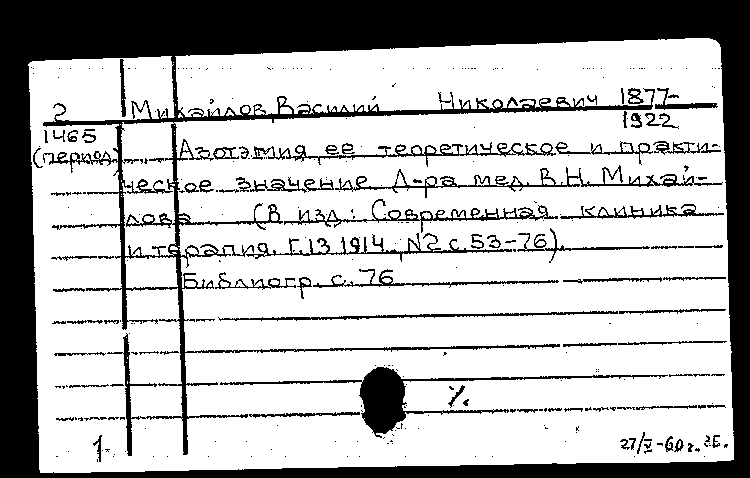 2 Михайлов, Василий Николаевич 1877-
1922
1465
(период) Азотэмия, ее теоретическое и практи-
ческое значение Д-ра мед. В.Н. Михай-
лова (В изд.: Современная клиника
и терапия. Г.13 1914, №2 с.53-76).
Библиогр. с. 76
%.
1 27/V-60г.